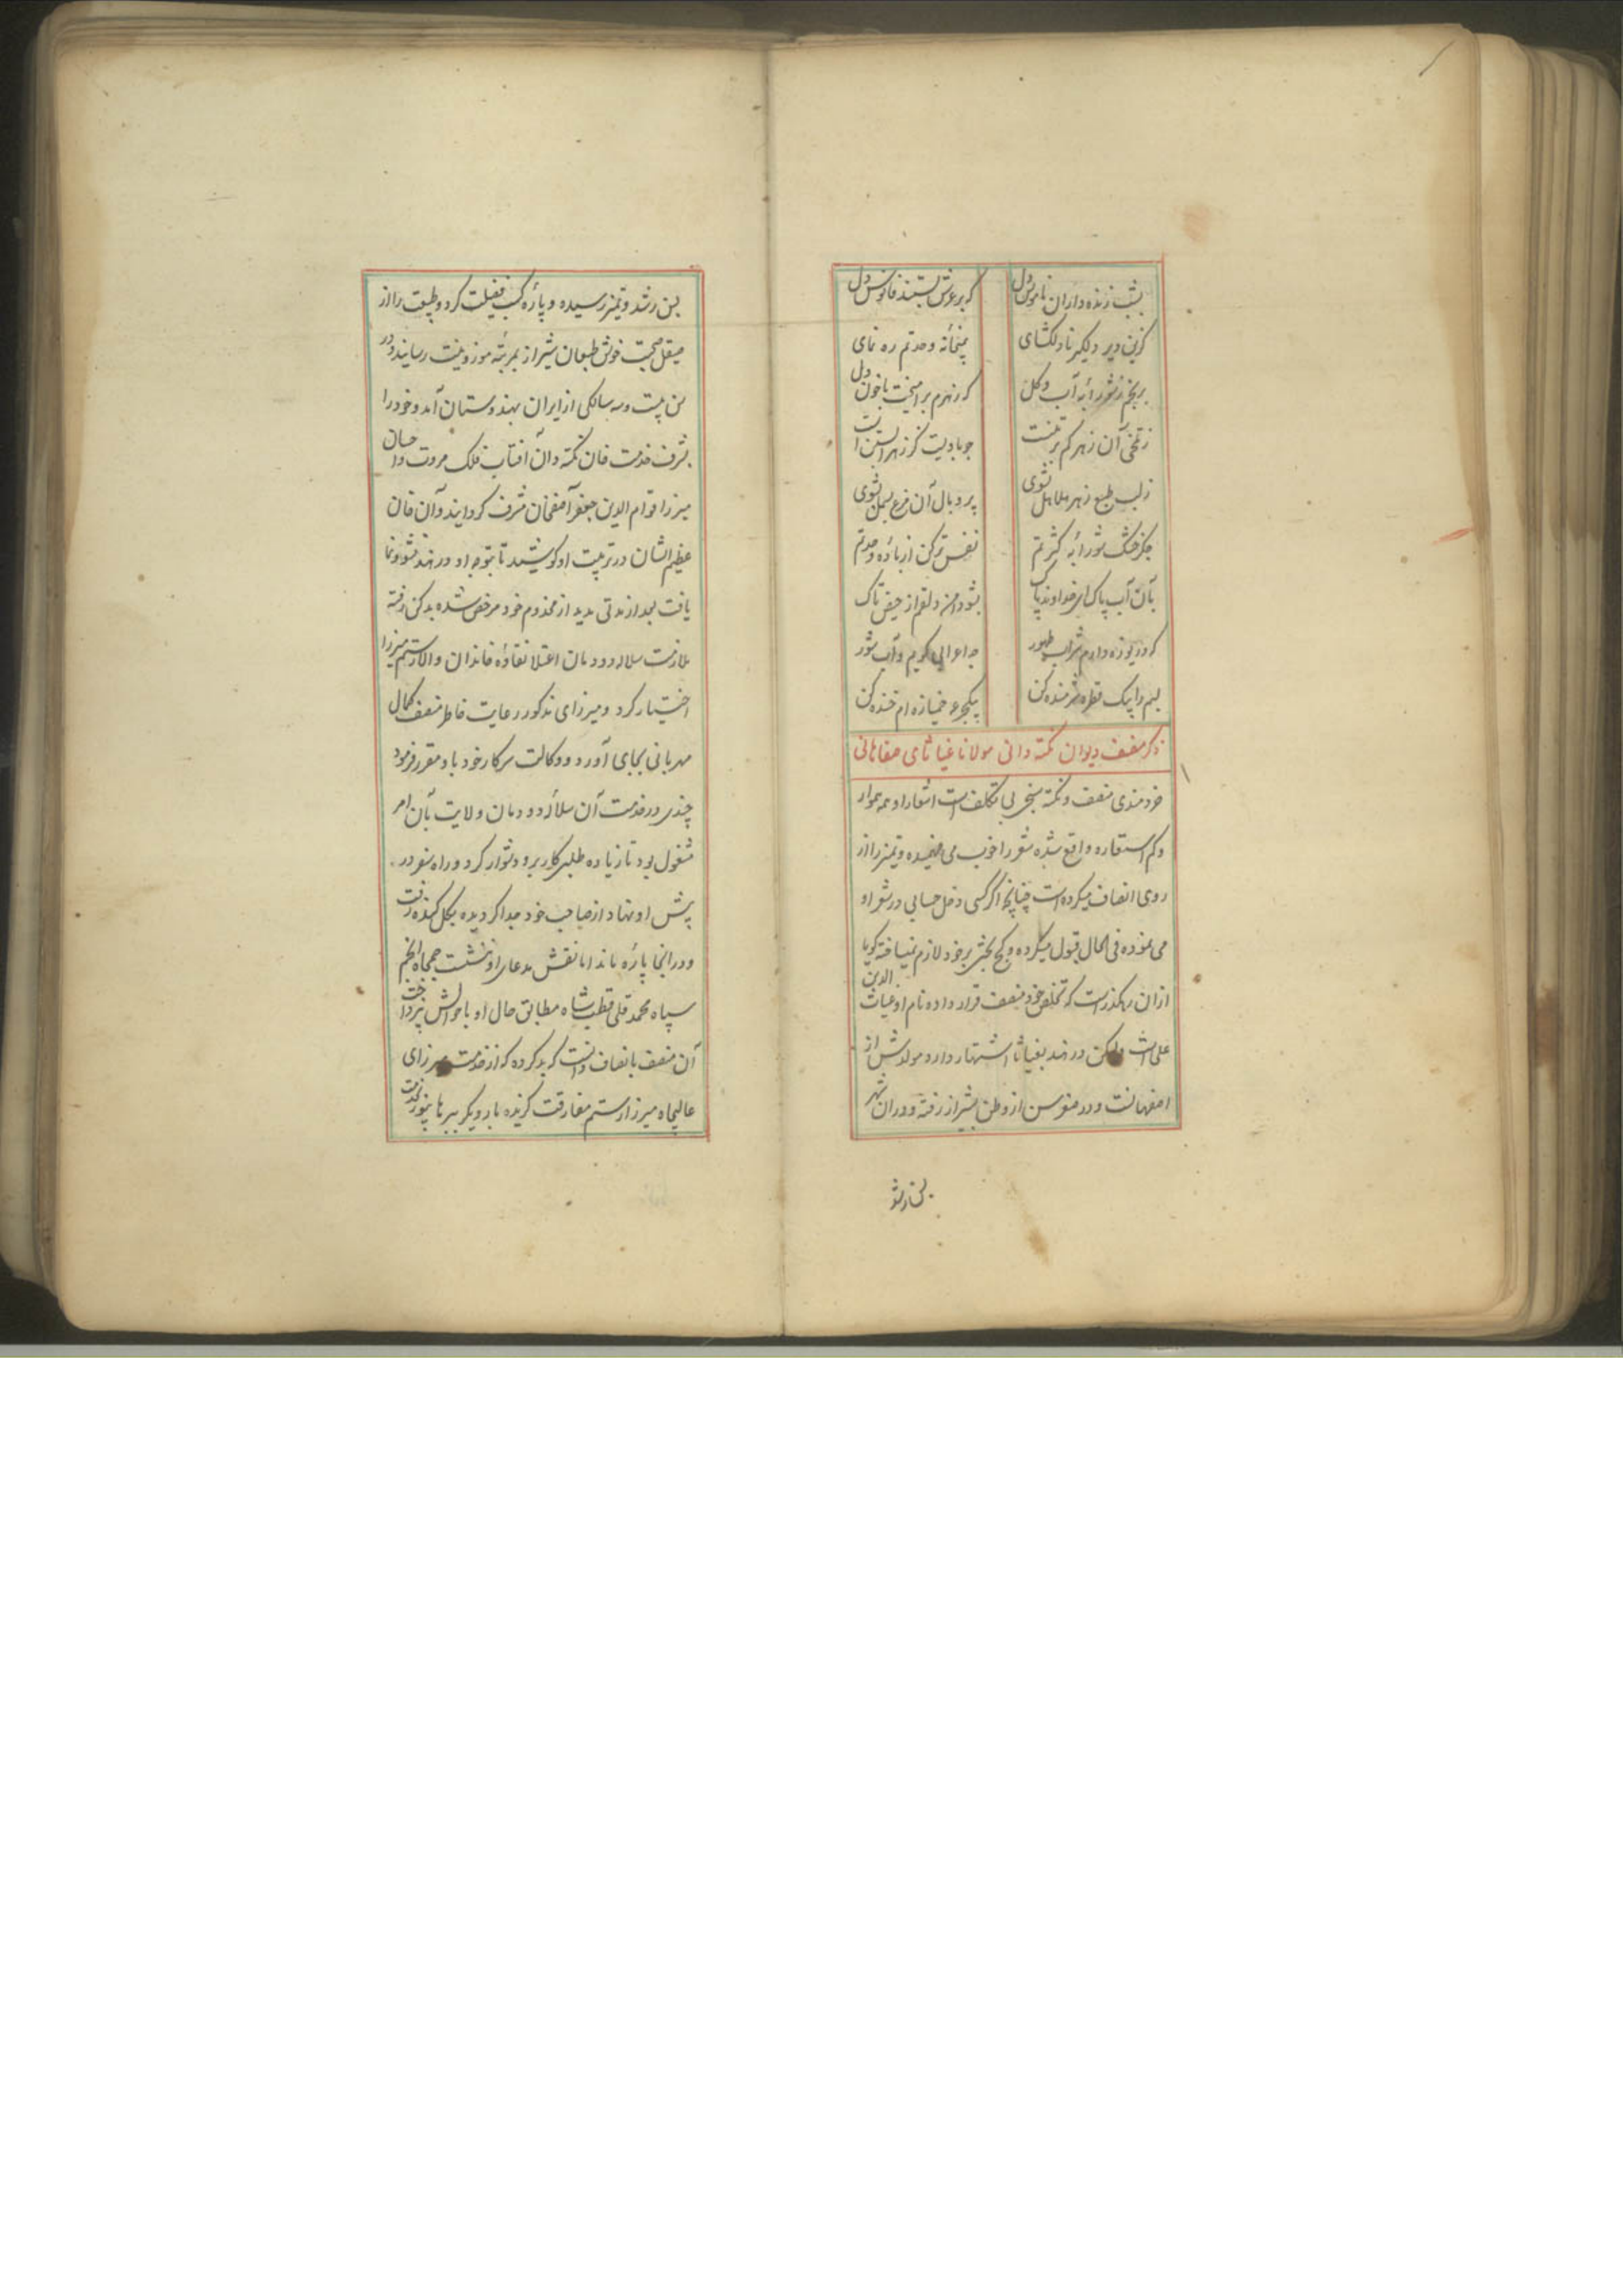 بشب زنده داران ناموس دل که بر عرش بستند فانوس دل
کزین دیر دلگیر نادلگشای بمیخانه وحدتم ره نمای
بر آب و گل که زهرم بر آمیخت با خون دل
ز تلخی آن زهر کم
ز لب طبع زهر هلاهل شوی پر و بال آن مرغ بسمل شوی
جگر خشک نفس تر کن از باده وحدتم
بآن آب پاک ای خداوند پاک بشو دامن دلقم از حیض تاک
که دریوزه دارم شراب طهور چه اعرابی کویم و آب شور
لبم را بیک قطره شرمنده کن بیکجرعه خمیازه ام خنده کن
ذکر منصف دیوان نکته دانی مولانا غیاثای صفاهانی
خردمندی منصف و نکته سنجی بی تکلف است اشعار او همه هموار
و کم استعاره واقع شده شعر را خوب می فهمیده و تمیز را از
روی انصاف میکرده است چنانچه اگر کسی دخل حسابی در شعر او
می نموده فی الحال قبول میکرده و کج بحثی بر خود لازم نمیساخته گویا
ازان رهگذر است که تخلص خود منصف قرار داده نام او غیاث الدین
علی است ولیکن در هند بغیاثا اشتهار دارد مولدش از
اصفهانست و در صغر سن از وطن بشیراز رفته و دران شهر
بسن رشد
بسن رشد و تمیز رسیده و پاره کسب فضیلت کرد و طبیعت را از
صیقل صحبت خوش طبعان شیراز بمرتبه موزونیت رسانید و در
سن بیست و سه سالگی از ایران بهندوستان آمد و خود را
بشرف خدمت خان نکته دان آفتاب فلک مروت و احسان
میرزا قوام الدین جعفر آصفخان مشرف گردانید و آن خان
عظیم الشان در تربیت او کوشید تا بتوجه او در هند نشو و نما
یافت بعد از مدتی مدید از مخدوم خود مرخص شده بدکن رفته
ملازمت سلاله دودمان اعتلا نقاوه خاندان والا رستم میرزا
اختیار کرد و میرزای مذکور رعایت خاطر منصف کمال
مهربانی بجای آورد و وکالت سرکار خود باو مقرر فرمود
چندی در خدمت آن سلاله دودمان ولایت بآن امر
مشغول بود تا زیاده طلبی کار برو دشوار کرد و راه سفر در
پیش او نهاد از صاحب خود جدا گردیده بگلکنده رفت
و در انجا پاره ماند اما نقش مدعای او ننشست جمجاه انجم
سپاه محمد قلی قطب شاه مطابق حال او باحوالش نپرداخت
آن منصف بانصاف دانست که بد کرده که از خدمت میرزای
عالیجاه میرزا رستم مفارقت گزیده بار دیگر ببرهانپور بخدمت